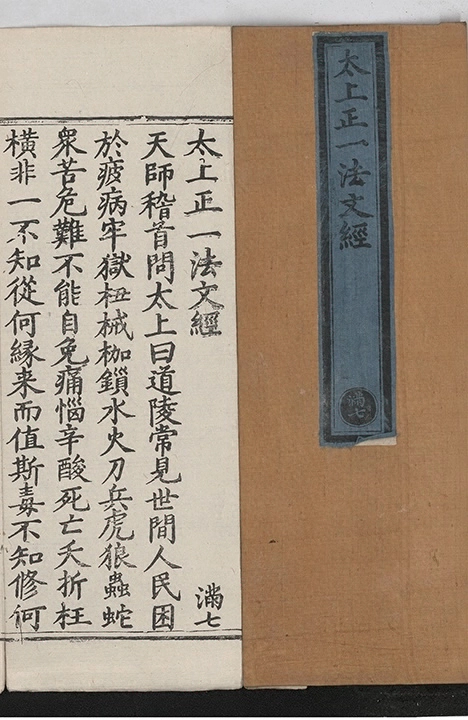 太上正一法文經
滿七
太上正一法文經
滿七
天師稽首問太上曰道陵常見世間人民困
於疲病牢獄杻械枷鎖水火刀兵虎狼蟲蛇
衆苦危難不能自免痛惱辛酸死亡夭折枉
橫非一不知從何緣来而值斯毒不知修何